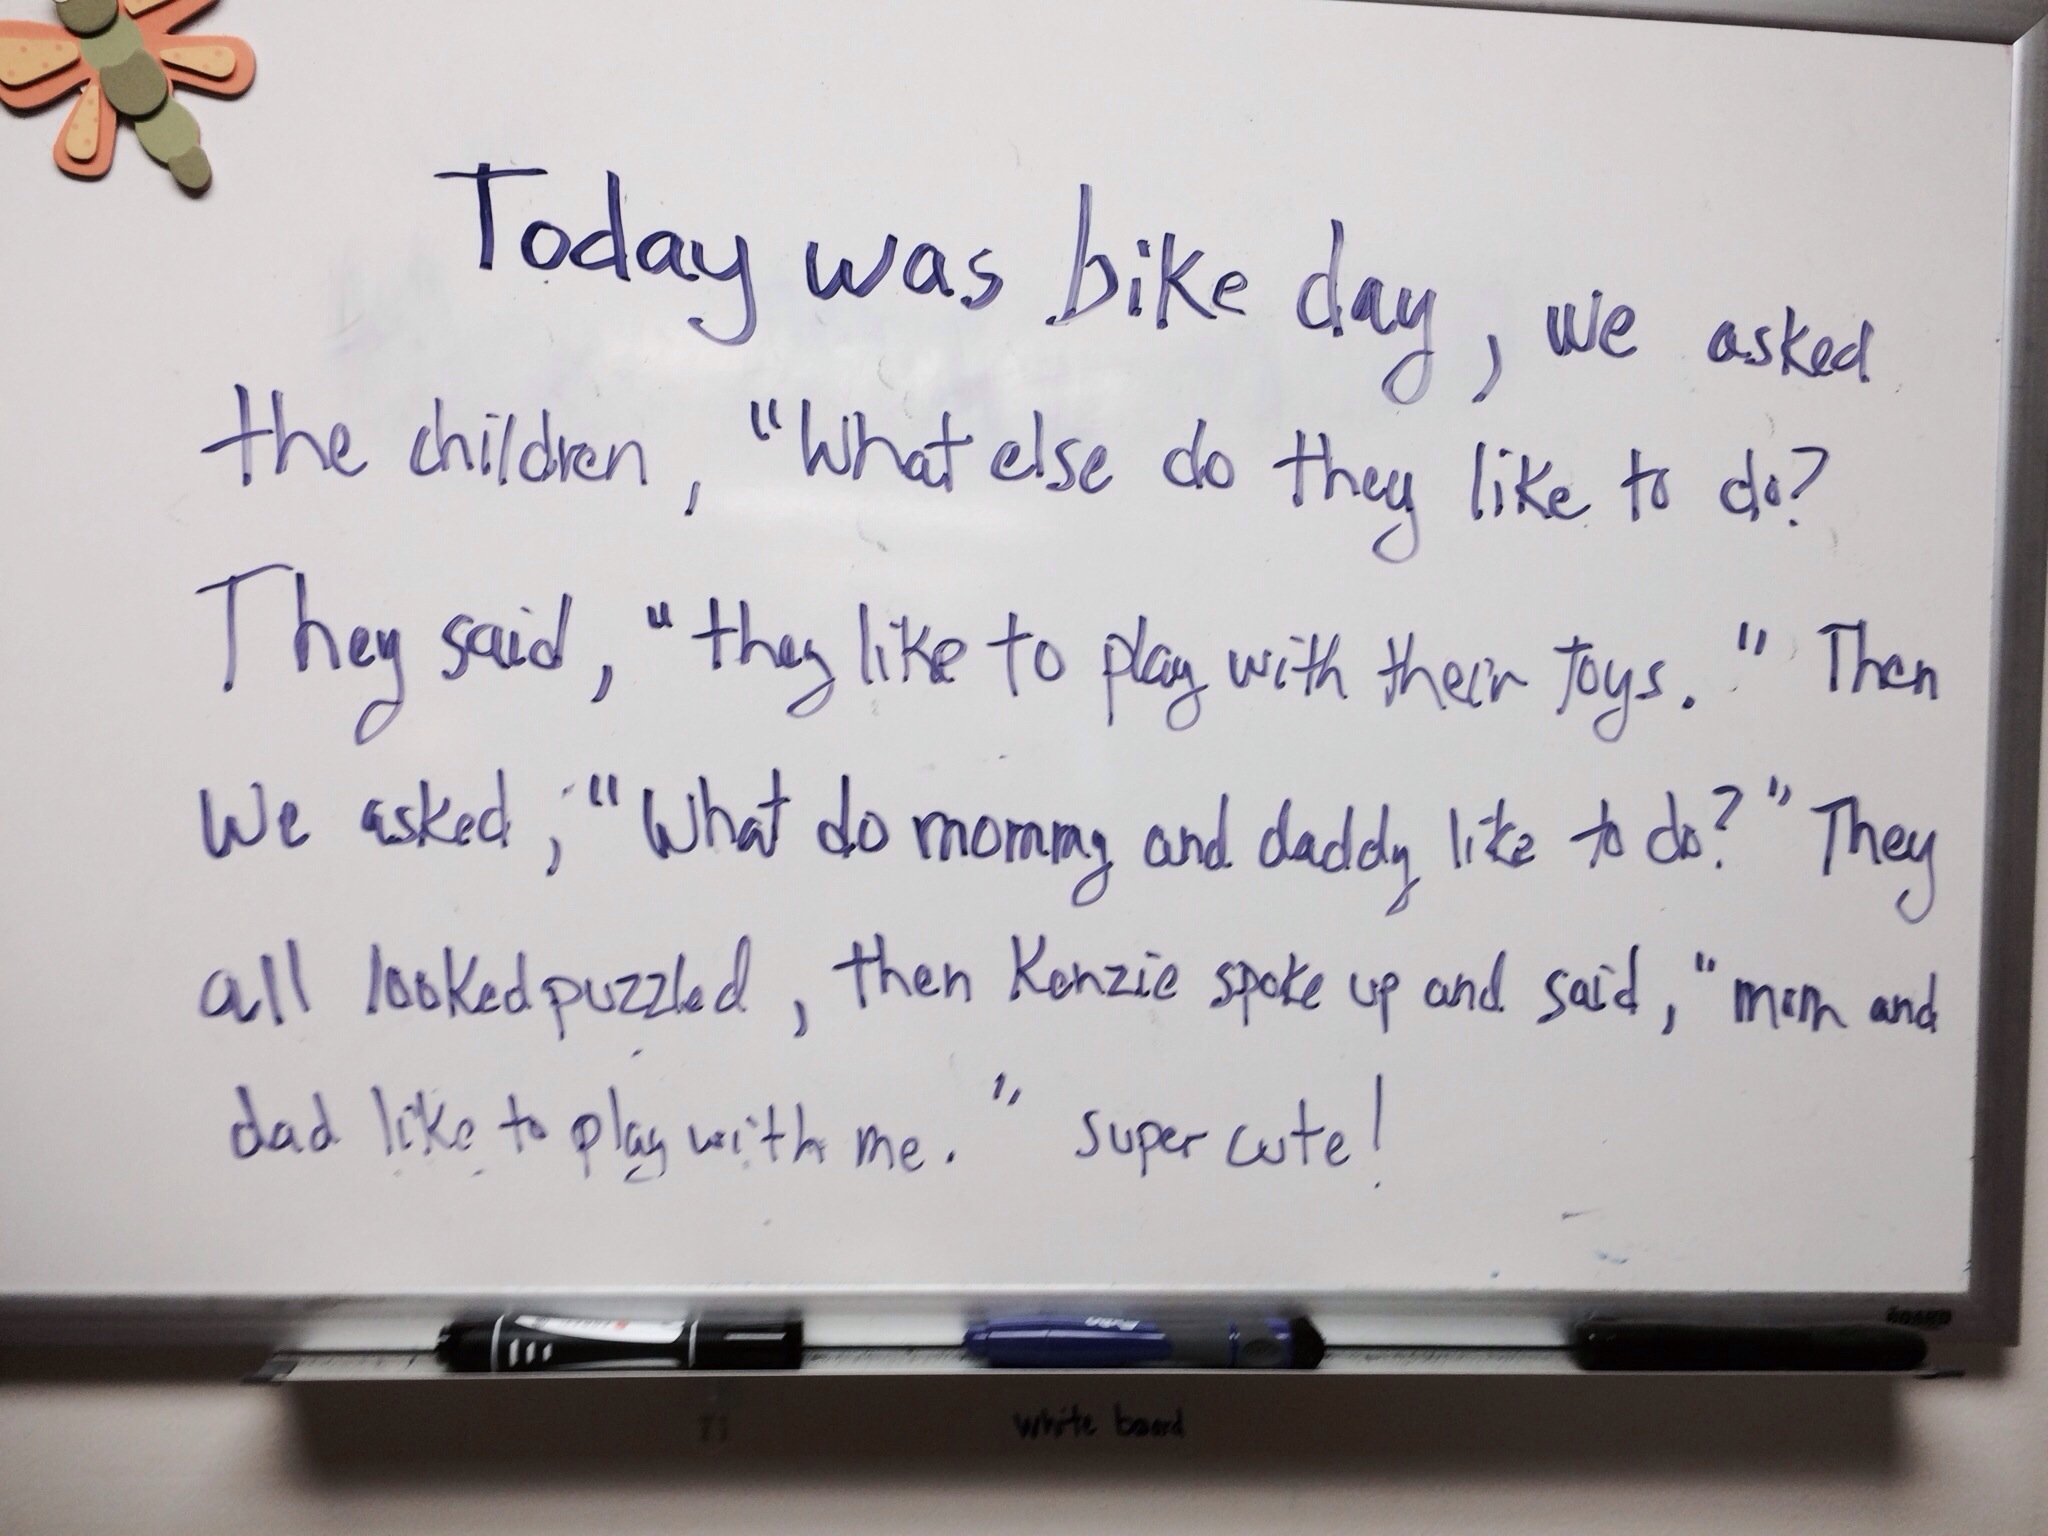 Today was bike day, we asked
the children, "What else do they like to do?
They said, "they like to play with their toys." Then
We asked, "What do mommy and daddy like to do?" They
all looked puzzled, then Kenzie spoke up and said, "mom and
dad like to play with me." super cute!
BOARD
white board